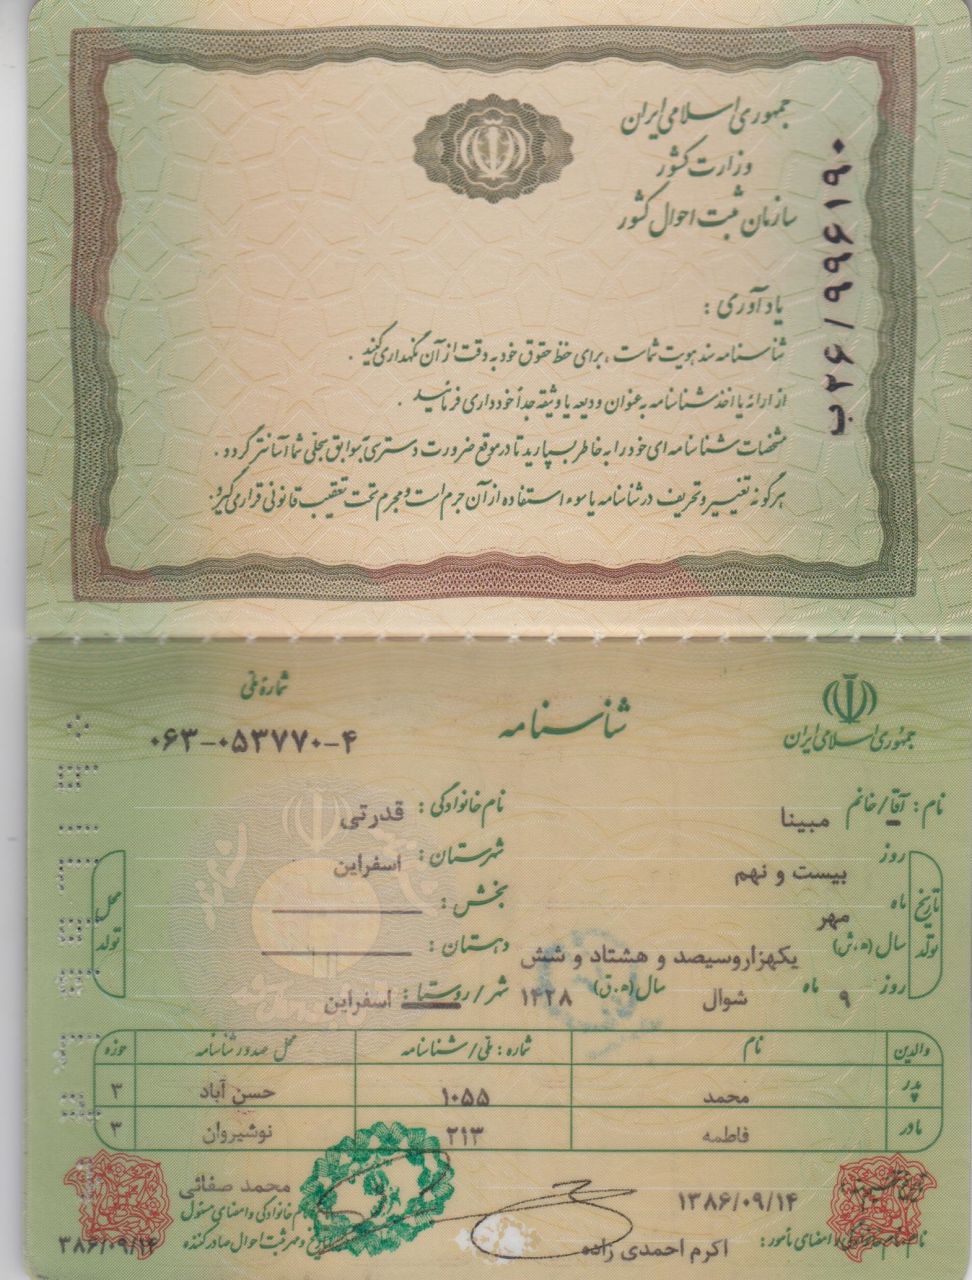 جمهوری اسلامی ایران
وزارت کشور
سازمان ثبت احوال کشور
ب۲۶/۹۹۶۱۹۰
یادآوری :
شناسنامه سند هویت شماست ، برای حفظ حقوق خود به دقت از آن نگهداری کنید .
از ارائه یا اخذ شناسنامه به عنوان ودیعه یا وثیقه جداً خودداری فرمائید .
مشخصات شناسنامه ای خود را به خاطر بسپارید تا در موقع ضرورت دسترسی بسوابق سجلی شما آسانتر گردد .
هرگونه تغییر و تحریف در شناسنامه یا سوء استفاده از آن جرم است و مجرم تحت تعقیب قانونی قرار می گیرد.
جمهوری اسلامی ایران
شناسنامه
شماره ملی
۰۶۳-۰۵۳۷۷۰-۴
نام: آقا/خانم مبینا نام خانوادگی: قدرتی
تاریخ تولد
روز بیست و نهم
ماه مهر
سال (ه.ش) یکهزاروسیصد و هشتاد و شش
روز ۹ ماه شوال سال (ه.ق) ۱۴۲۸
محل تولد
شهرستان: اسفراین
بخش:
دهستان:
شهر/روستا: اسفراین
والدین نام شماره: ملی/شناسنامه محل صدور شناسنامه حوزه
پدر محمد ۱۰۵۵ حسن آباد ۳
مادر فاطمه ۲۱۳ نوشیروان ۳
۱۳۸۶/۰۹/۱۴
نام خانوادگی و امضای مأمور: اکرم احمدی زاده
محمد صفائی
نام خانوادگی و امضای مسئول
و مهر ثبت احوال صادر کننده
۱۳۸۶/۰۹/۱۴